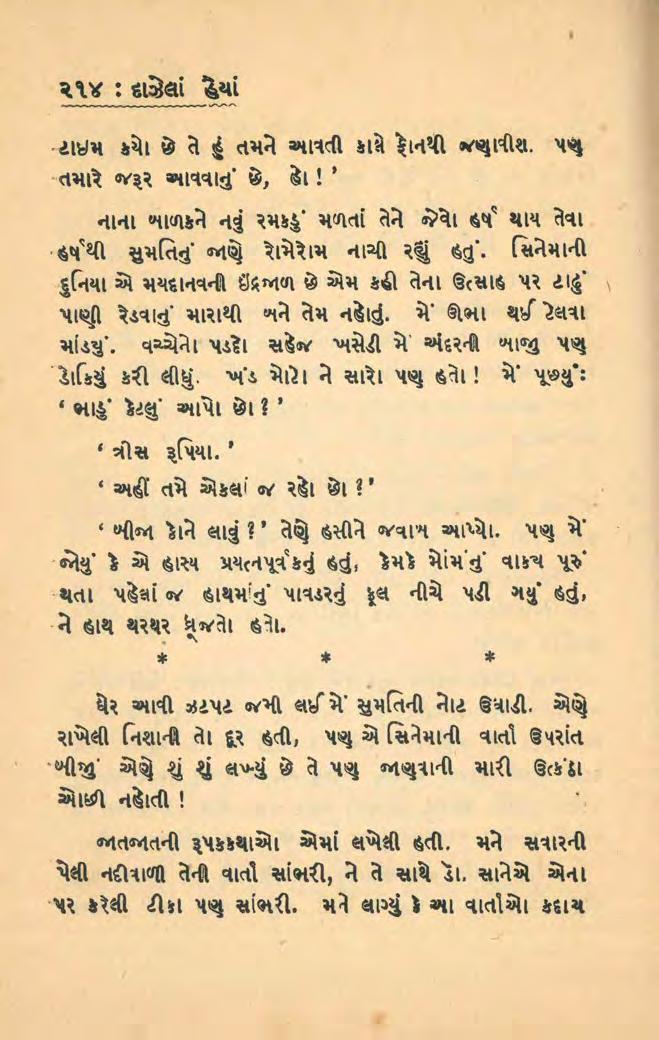 ૨૧૪ : દાઝેલાં હૈયાં
ટાઇમ કયો છે તે હું તમને આવતી કાલે ફોનથી જણાવીશ. પણ
તમારે જરૂર આવવાનું છે, હો ! ’
નાના બાળકને નવું રમકડું મળતાં તેને જેવો હર્ષ થાય તેવા
હર્ષથી સુમતિનું જાણે રોમેરોમ નાચી રહ્યું હતું. સિનેમાની
દુનિયા એ મયદાનવની ઇંદ્રજાળ છે એમ કહી તેના ઉત્સાહ પર ટાઢું
પાણી રેડવાનું મારાથી બને તેમ નહોતું. મેં ઊભા થઈ ટેલવા
માંડયું. વચ્ચેનો પડદો સહેજ ખસેડી મેં અંદરની બાજુ પણ
ડોકિયું કરી લીધું. ખંડ મોટો ને સારો પણ હતો ! મેં પૂછ્યું :
‘ ભાડું કેટલું આપો છો ? ’
‘ ત્રીસ રૂપિયા. ’
‘ અહીં તમે એકલાં જ રહો છો ? ’
‘ બીજા કોને લાવું ? ’ તેણે હસીને જવાબ આપ્યો. પણ મેં
જોયું કે એ હાસ્ય પ્રયત્નપૂર્વકનું હતું, કેમકે મોંમાંનું વાકય પૂરું
થતા પહેલાં જ હાથમાંનું પાવડરનું ફૂલ નીચે પડી ગયું હતું,
ને હાથ થરથર ધ્રૂજતો હતો.
* * *
ઘેર આવી ઝટપટ જમી લઈ મેં સુમતિની નોટ ઉઘાડી. એણે
રાખેલી નિશાની તો દૂર હતી, પણ એ સિનેમાની વાર્તા ઉપરાંત
બીજું એણે શું શું લખ્યું છે તે પણ જાણવાની મારી ઉત્કંઠા
ઓછી નહોતી !
જાતજાતની રૂપકકથાઓ એમાં લખેલી હતી. મને સવારની
પેલી નદીવાળી તેની વાર્તા સાંભરી, ને તે સાથે ડૉ. સાનેએ એના
પર કરેલી ટીકા પણ સાંભરી. મને લાગ્યું કે આ વાર્તાઓ કદાચ